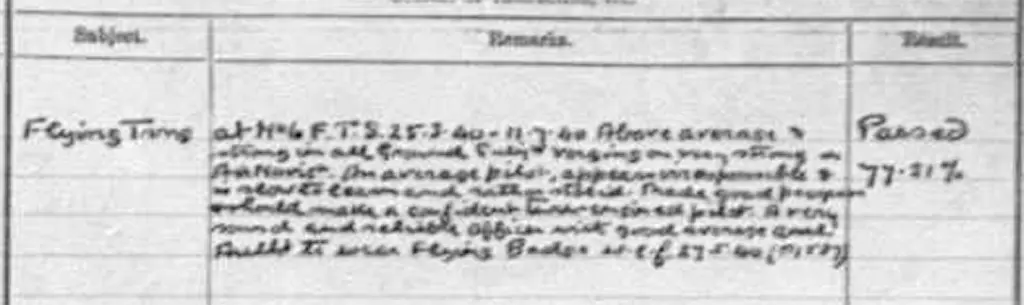 Subject. Remarks. Result.
Flying Trng at No 6 F.T.S. 25.3.40 - 11.7.40 Above average & Passed
strong in all Ground verging on very strong in 77.21%
An average pilot, appears &
is slow to learn and rather stolid. Made good progress
& should make a confident twin engined pilot. A very
sound and reliable officer with good average qual.
to wear Flying Badge w.e.f. 27.5.40